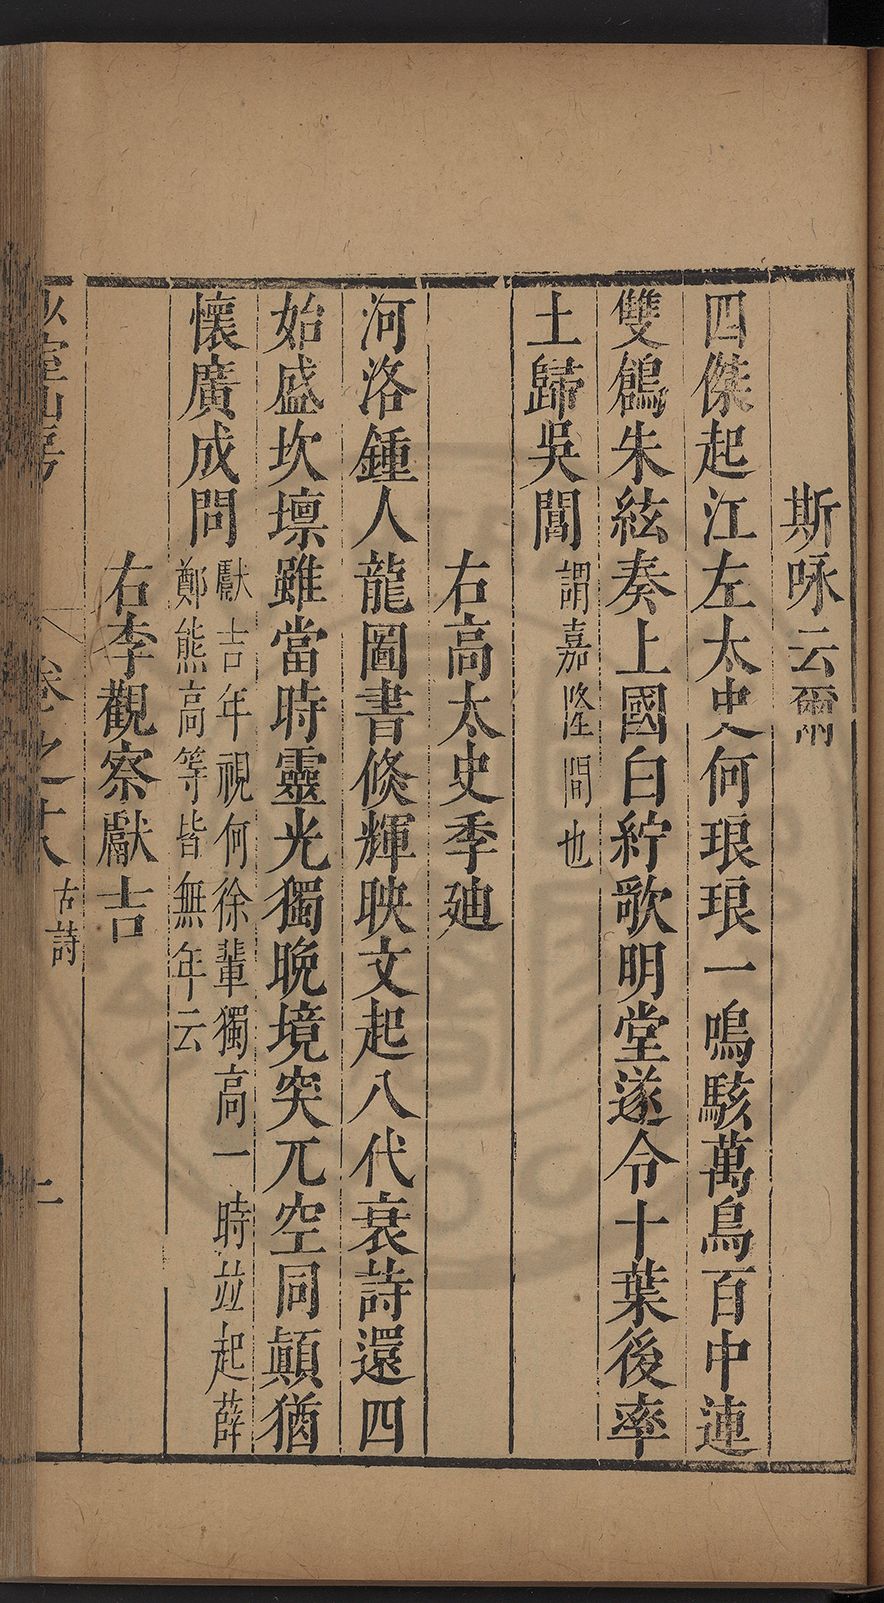 斯咏云爾
四傑起江左太史何琅琅一鳴駭萬鳥百中連
雙鶬朱絃奏上國白紵歌明堂遂令十葉後率
土歸吳閶謂嘉隆間也
右高太史季廸
河洛鍾人龍圖書倐輝映文起八代衰詩還四
始盛坎壈雖當時靈光獨晩境突兀空同顛猶
懷廣成問
獻吉年視何徐輩獨高一時並起薛
鄭熊高等皆無年云
右李觀察獻吉
山房 卷之十八 古詩 二